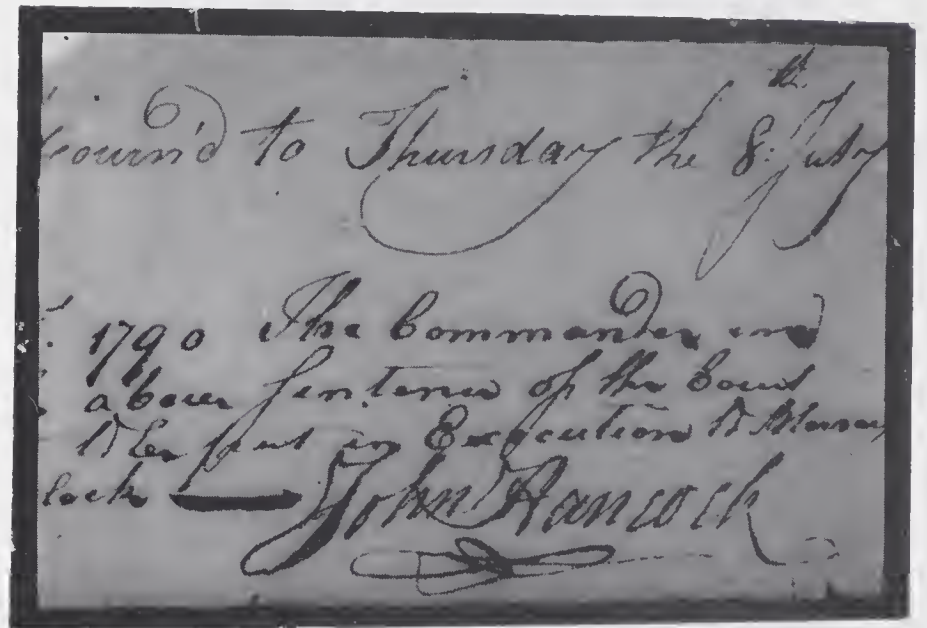 journ'd to Thursday the 8th July
1790 The Commander in
above Sentence of the Court
to be put in Execution to Morrow
lock John Hancock